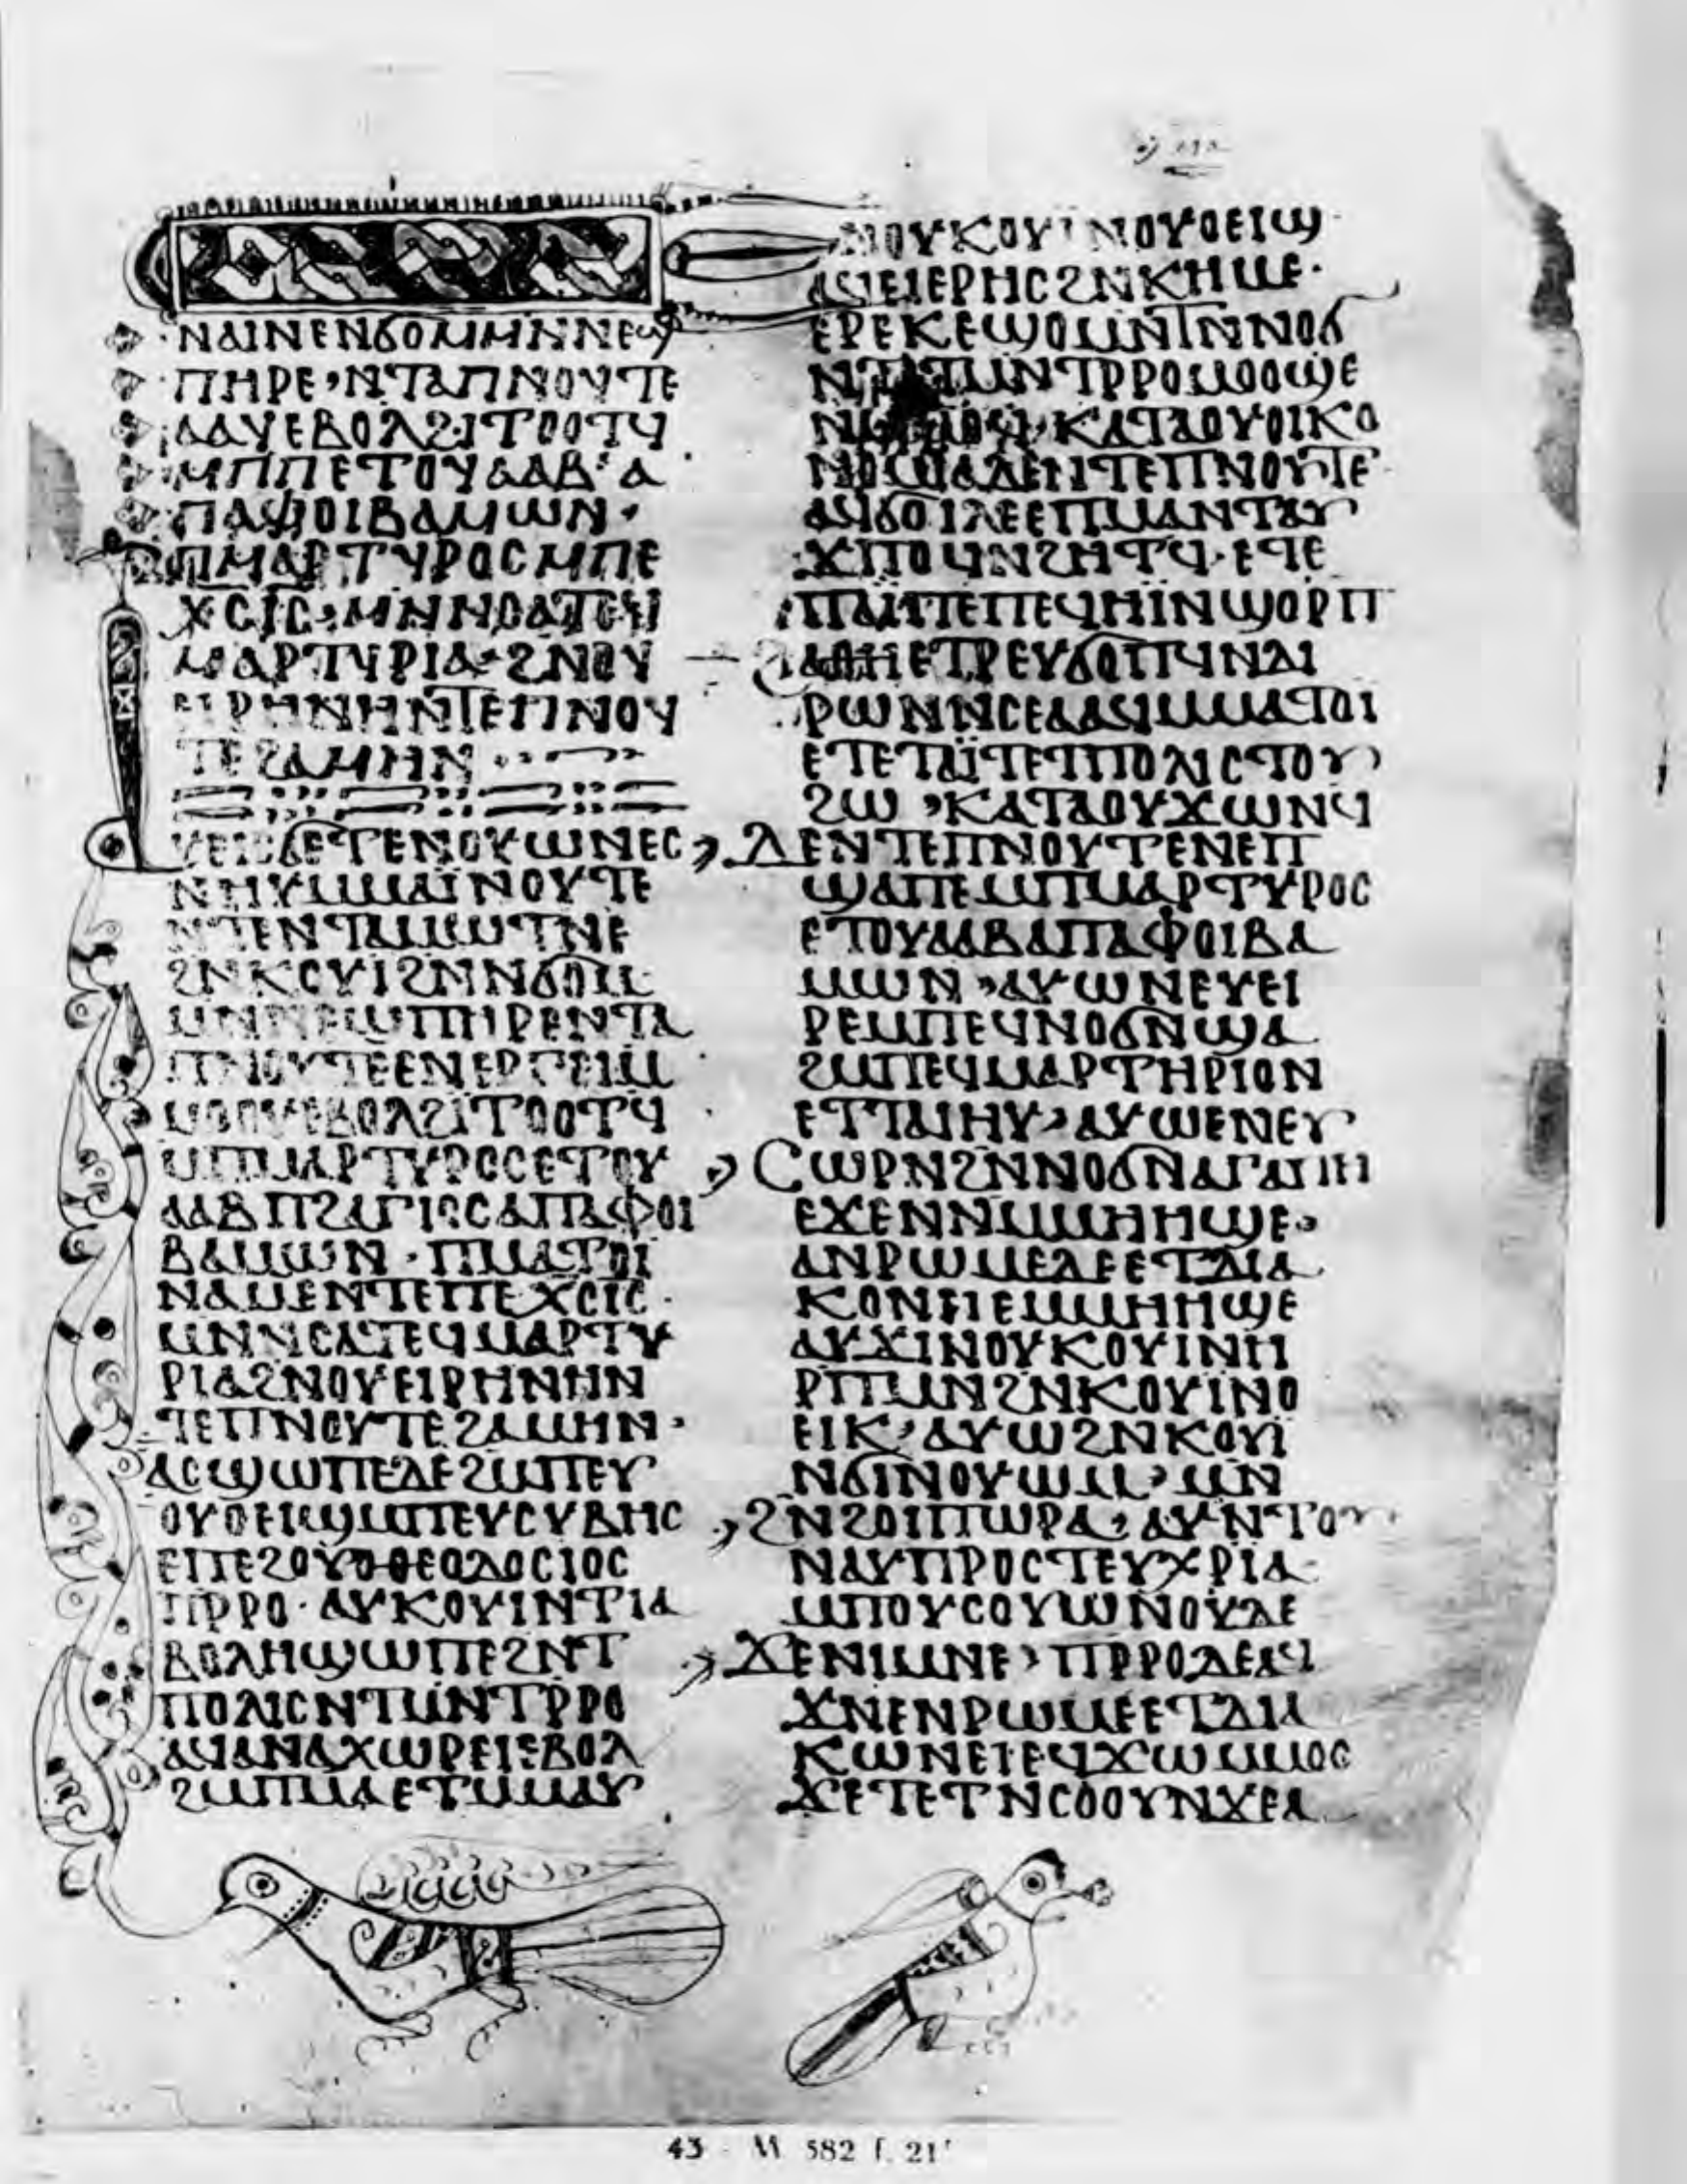 ⲛⲁⲓⲛⲉⲛϭⲟⲙⲙⲛⲛⲉϣ
ⲡⲏⲣⲉ ⲛⲧⲁⲡⲛⲟⲩⲧⲉ
ⲁⲁⲩⲉⲃⲟⲗϩⲓⲧⲟⲟⲧϥ
ⲙⲡⲡⲉⲧⲟⲩⲁⲁⲃ ⲁ
ⲡⲁⲫⲟⲓⲃⲁⲙⲱⲛ·
ⲡⲙⲁⲣⲧⲩⲣⲟⲥⲙⲡⲉ
ⲭⲥⲓⲥ
ⲙⲁⲣⲧⲩⲣⲓⲁ ϩⲛⲟⲩ
ⲉⲓⲣⲏⲛⲏⲛⲧⲉⲡⲛⲟⲩ
ⲧⲉϩⲁⲙⲏⲛ
ⲛⲏⲩⲙⲙⲁⲓⲛⲟⲩⲧⲉ
ϩⲛⲕⲟⲩⲓϩⲛⲛϭⲟⲙ
ⲙⲛⲛⲉϣⲡⲏⲣⲉⲛⲧⲁ
ⲡⲛⲟⲩⲧⲉⲉⲛⲉⲣⲅⲉⲓⲙ
ⲙⲟⲟⲩⲉⲃⲟⲗϩⲓⲧⲟⲟⲧϥ
ⲙⲡⲙⲁⲣⲧⲩⲣⲟⲥⲉⲧⲟⲩ
ⲁⲁⲃⲡϩⲁⲅⲓⲟⲥⲁⲡⲁⲫⲟⲓ
ⲃⲁⲙⲱⲛ·ⲡⲙⲁⲧⲟⲓ
ⲛⲁⲙⲉⲛⲧⲉⲡⲉⲭⲥⲓⲥ·
ⲙⲛⲛⲥⲁⲧⲉϥⲙⲁⲣⲧⲩ
ⲣⲓⲁϩⲛⲟⲩⲉⲓⲣⲏⲛⲏⲛ
ⲧⲉⲡⲛⲟⲩⲧⲉϩⲁⲙⲏⲛ·
ⲁⲥϣⲱⲡⲉⲇⲉϩⲙⲡⲉⲩ
ⲟⲩⲟⲉⲓϣⲙⲡⲉⲩⲥⲩⲃⲏⲥ
ⲉⲡⲉϩⲟⲩⲟⲑⲉⲟⲇⲟⲥⲓⲟⲥ
ⲡⲣⲣⲟ·ⲁⲩⲕⲟⲩⲓⲛⲧⲓⲁ
ⲃⲟⲗⲏϣⲱⲡⲉϩⲛⲧ
ⲡⲟⲗⲓⲥⲛⲧⲙⲛⲧⲣⲣⲟ
ⲁϥⲁⲛⲁⲭⲱⲣⲉⲓⲉⲃⲟⲗ
ϩⲙⲡⲙⲁⲉⲧⲙⲙⲁⲩ
ⲛⲟⲩⲕⲟⲩⲓⲛⲟⲩⲟⲉⲓϣ·
ⲁϥⲉⲓⲉⲣⲏⲥϩⲛⲕⲏⲙⲉ·
ⲉⲣⲉⲕⲉϣⲟⲙⲛⲧⲛⲛⲟϭ
ⲛⲧⲉⲧⲙⲛⲧⲣⲣⲟⲙⲟⲟϣⲉ
ⲕⲁⲧⲁⲟⲩⲟⲓⲕⲟ
ⲛⲟⲙⲓⲁⲇⲉⲛⲧⲉⲡⲛⲟⲩⲧⲉ
ⲁϥϭⲟⲓⲗⲉⲉⲡⲙⲁⲛⲧⲁⲩ
ϫⲡⲟϥⲛϩⲏⲧϥ·ⲉⲧⲉ
ⲡⲁⲓⲡⲉⲡⲉϥⲏⲓⲛϣⲟⲣⲡ
ⲉⲧⲣⲉⲩϭⲟⲡϥⲛⲇⲓ
ⲣⲱⲛⲛⲥⲉⲁⲁϥⲙⲙⲁⲧⲟⲓ
ⲉⲧⲉⲧⲁⲓⲧⲉⲧⲡⲟⲗⲓⲥⲧⲟⲩ
ϩⲱ ⲕⲁⲧⲁⲟⲩⲭⲱⲛϥ
ⲇⲉⲛⲧⲉⲡⲛⲟⲩⲧⲉⲛⲉⲡ
ϣⲁⲡⲉⲙⲡⲙⲁⲣⲧⲩⲣⲟⲥ
ⲉⲧⲟⲩⲁⲁⲃⲁⲡⲁⲫⲟⲓⲃⲁ
ⲙⲱⲛ ⲁⲩⲱⲛⲉⲩⲉⲓ
ⲣⲉⲙⲡⲉϥⲛⲟϭⲛϣⲁ
ϩⲙⲡⲉϥⲙⲁⲣⲧⲏⲣⲓⲟⲛ
ⲉⲧⲧⲁⲓⲏⲩ ⲁⲩⲱⲉⲛⲉⲩ
ⲥⲱⲣⲛϩⲛⲛⲟϭⲛⲁⲅⲁⲡⲏ
ⲉϫⲉⲛⲛⲙⲙⲏⲏϣⲉ
ⲁⲛⲣⲱⲙⲉⲇⲉⲉⲧⲇⲓⲁ
ⲕⲟⲛⲉⲓⲉⲙⲙⲏⲏϣⲉ
ⲁⲩϫⲓⲛⲟⲩⲕⲟⲩⲓⲛⲏ
ⲣⲡⲙⲛϩⲛⲕⲟⲩⲓⲛⲟ
ⲉⲓⲕ ⲁⲩⲱϩⲛⲕⲟⲩⲓ
ⲛϭⲓⲛⲟⲩⲱⲙ ⲙⲛ
ϩⲛϩⲟⲓⲡⲱⲣⲁ ⲁⲩⲛⲧⲟⲩ
ⲛⲁⲩⲡⲣⲟⲥⲧⲉⲩⲭⲣⲓⲁ
ⲙⲡⲟⲩⲥⲟⲩⲱⲛⲟⲩⲇⲉ
ϫⲉⲛⲓⲙⲛⲉ ⲡⲣⲣⲟⲇⲉⲁϥ
ϫⲛⲉⲛⲣⲱⲙⲉⲉⲧⲇⲓⲁ
ⲕⲱⲛⲉⲓⲉϥϫⲱⲙⲙⲟⲥ
ϫⲉⲧⲉⲧⲛⲥⲟⲟⲩⲛϫⲉⲁ
43 - M 582 f. 21